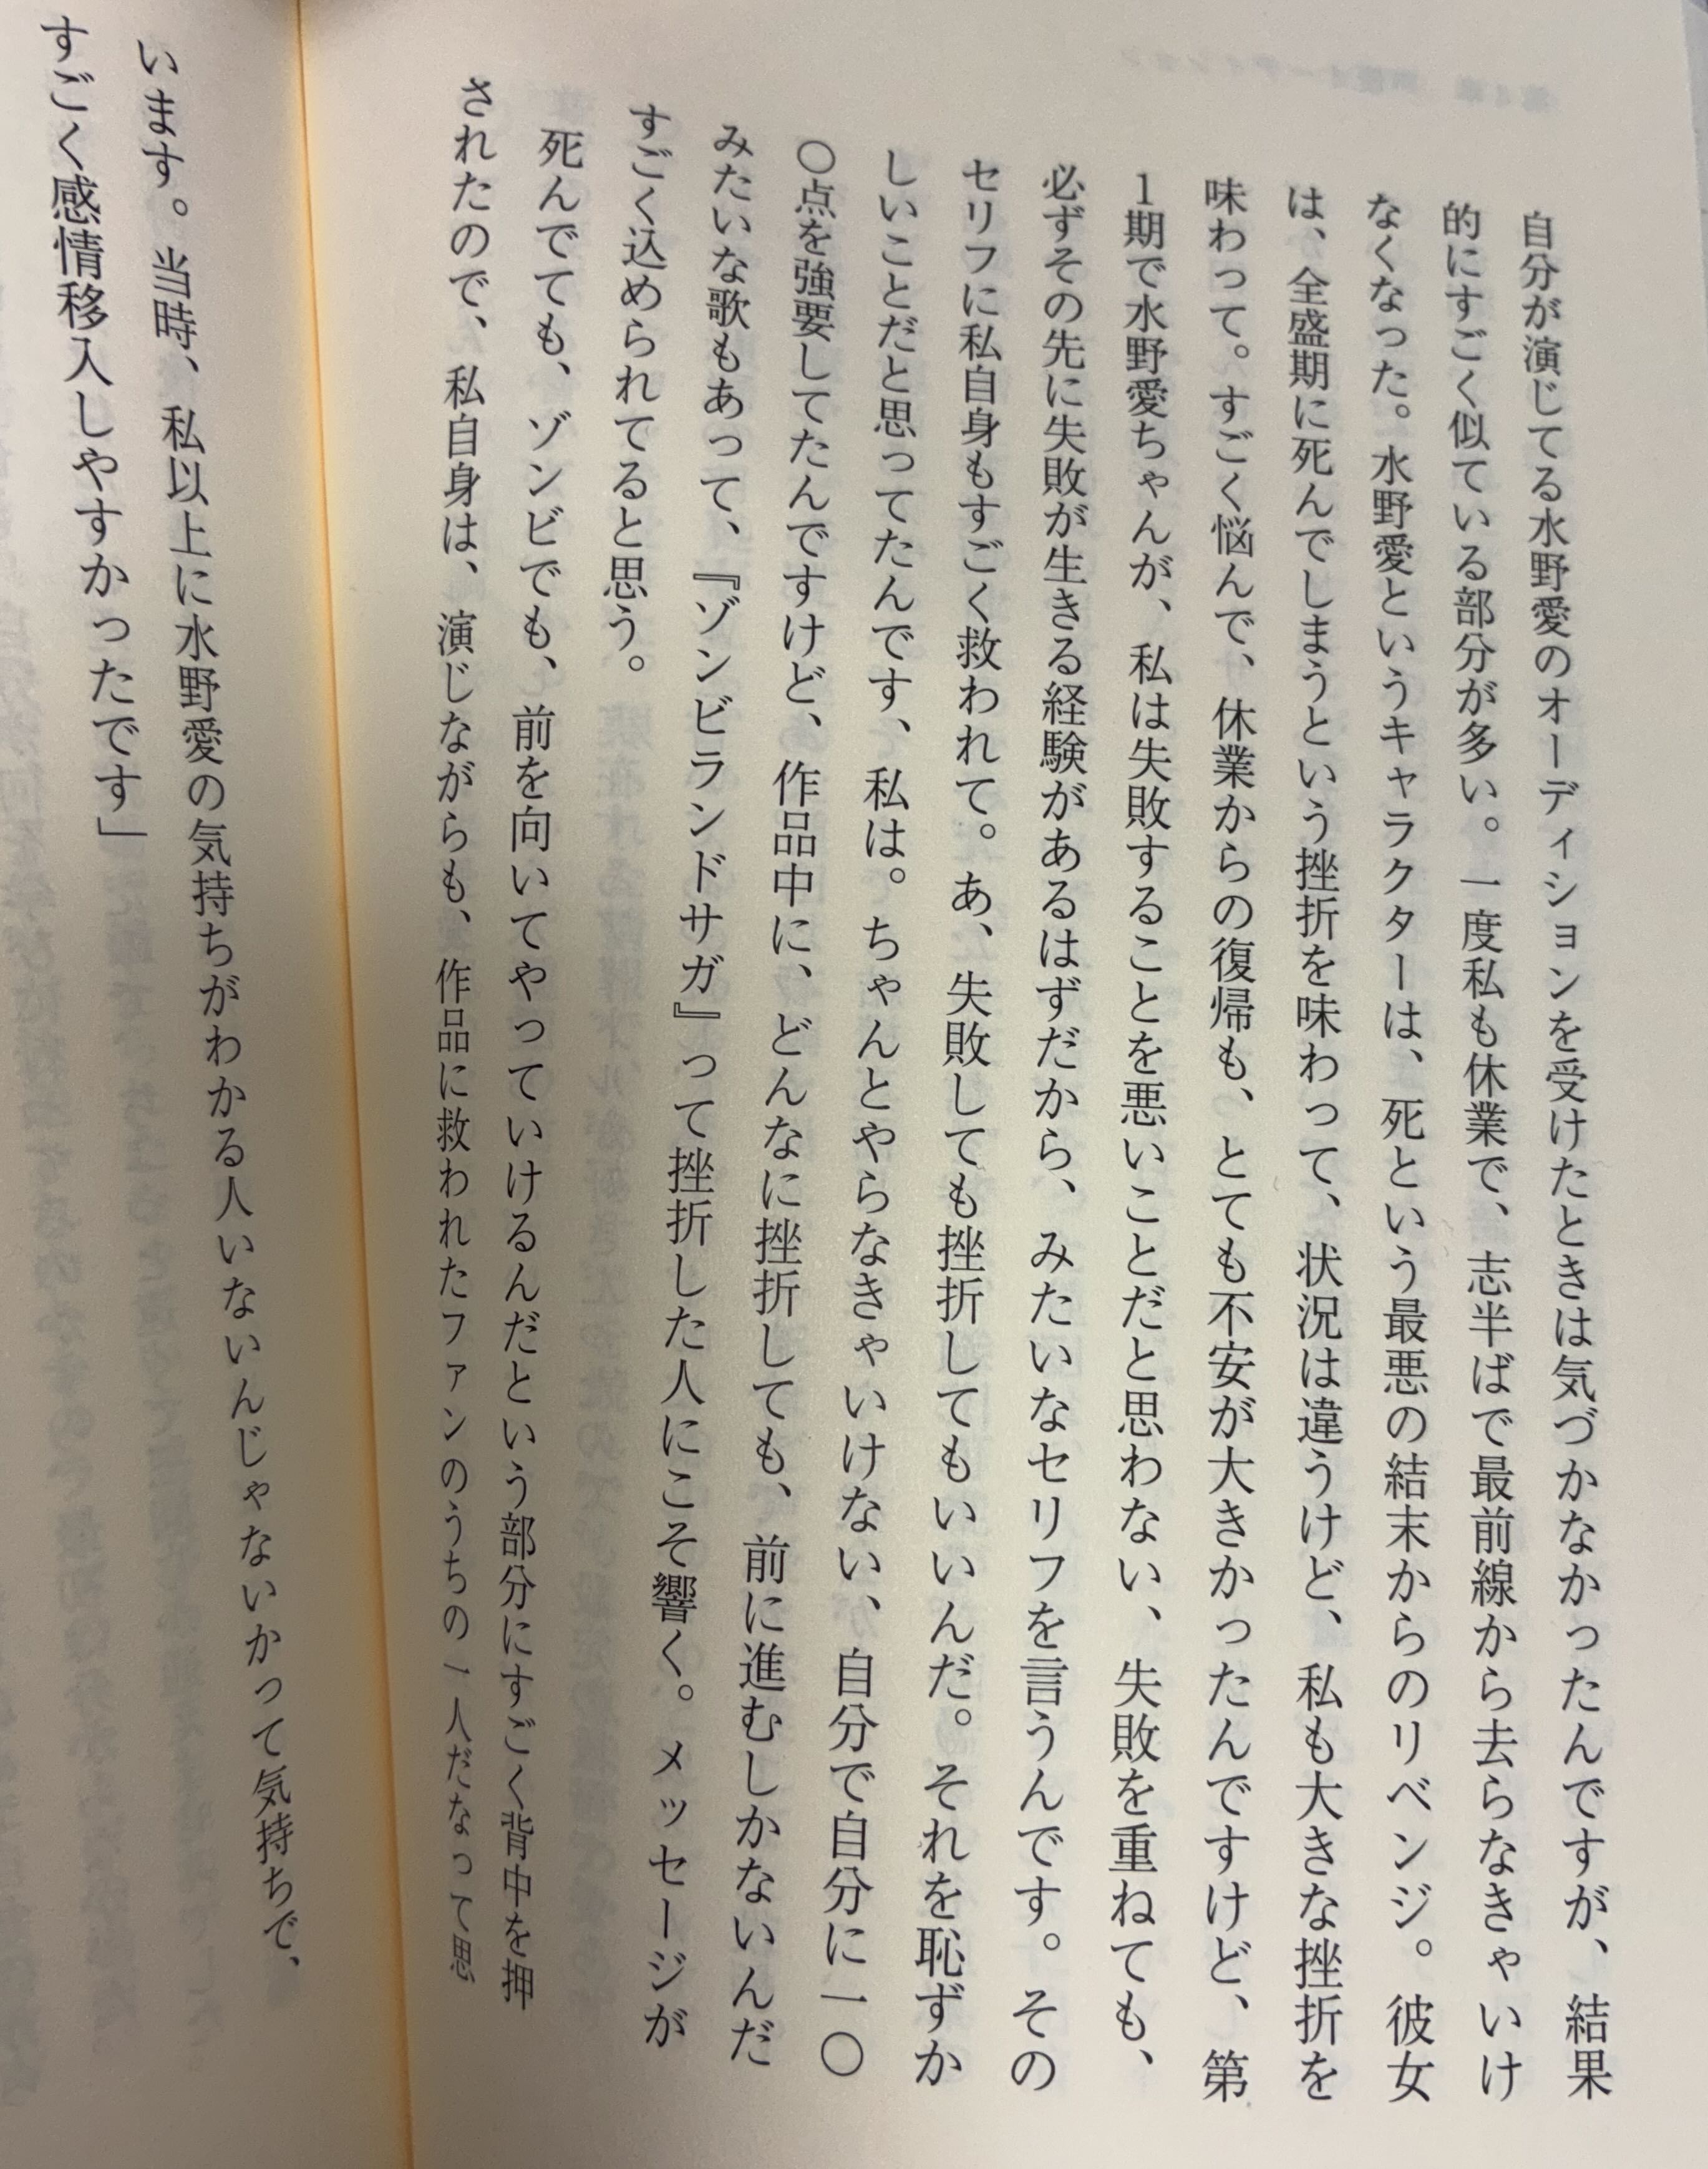 自分が演じてる水野愛のオーディションを受けたときは気づかなかったんですが、結果
的にすごく似ている部分が多い。一度私も休業で、志半ばで最前線から去らなきゃいけ
なくなった。水野愛というキャラクターは、死という最悪の結末からのリベンジ。彼女
は、全盛期に死んでしまうという挫折を味わって、状況は違うけど、私も大きな挫折を
味わって。すごく悩んで、休業からの復帰も、とても不安が大きかったんですけど、第
1期で水野愛ちゃんが、私は失敗することを悪いことだと思わない、失敗を重ねても、
必ずその先に失敗が生きる経験があるはずだから、みたいなセリフを言うんです。その
セリフに私自身もすごく救われて。あ、失敗しても挫折してもいいんだ。それを恥ずか
しいことだと思ってたんです、私は。ちゃんとやらなきゃいけない、自分で自分に一〇
〇点を強要してたんですけど、作品中に、どんなに挫折しても、前に進むしかないんだ
みたいな歌もあって、『ゾンビランドサガ』って挫折した人にこそ響く。メッセージが
すごく込められてると思う。
死んでても、ゾンビでも、前を向いてやっていけるんだという部分にすごく背中を押
されたので、私自身は、演じながらも、作品に救われたファンのうちの一人だなって思
います。当時、私以上に水野愛の気持ちがわかる人いないんじゃないかって気持ちで、
すごく感情移入しやすかったです」